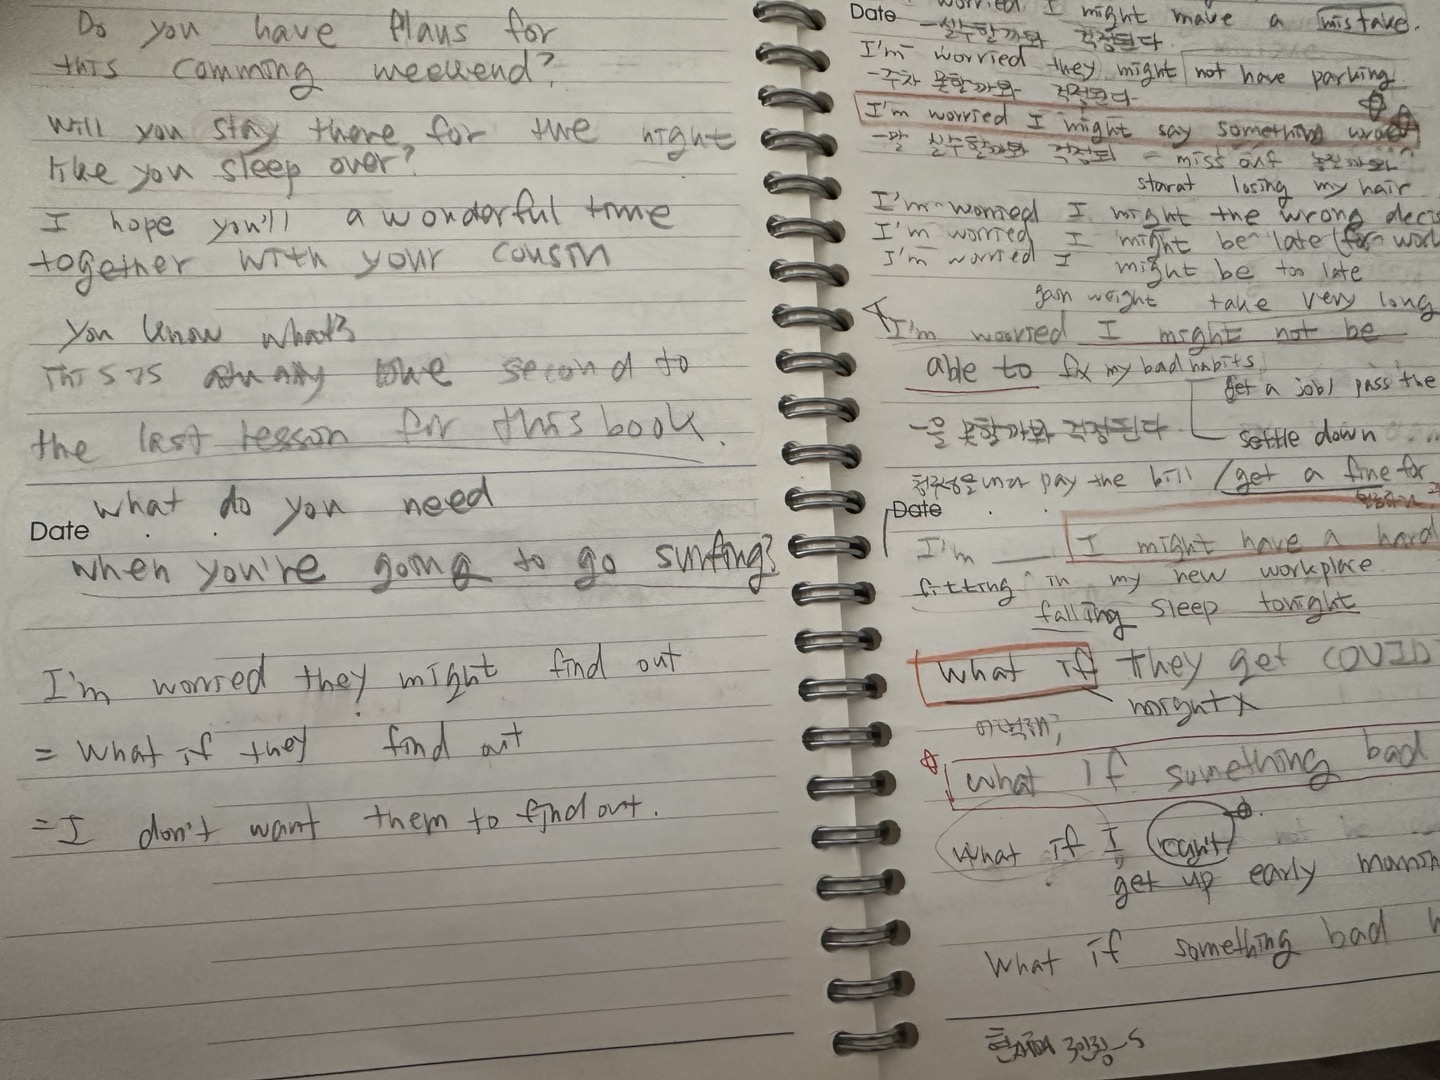 Do you have Plans for
this comming weekend?
Will you stay there for the night
like you sleep over?
I hope you'll a wonderful time
together with your cousin
You know what?
This is the second to
the last lesson for this book.
what do you need
Date
when you're going to go surfing?
I'm worried they might find out
= What if they find out
= I don't want them to find out.
worried I might make a mistake.
Date
-실수할까봐 걱정된다.
I'm worried they might not have parking
-주차 못할까봐 걱정된다
I'm worried I might say something
-말 실수할까봐 걱정돼 - miss out 놓칠까봐
starat losing my hair
I'm worried I might the wrong
I'm worried I might be late (for
I'm worried I might be too late
gain weight take very long
I'm worried I might not be
able to fix my bad habits
get a job/ pass the
-을 못할까봐 걱정된다
settle down
pay the bill / get a fine for
Date
I'm I might have a hard
fitting in my new workplace
falling sleep tonight
What if they get COVID
might X
What if something bad
What if I can't
get up early
What if something bad